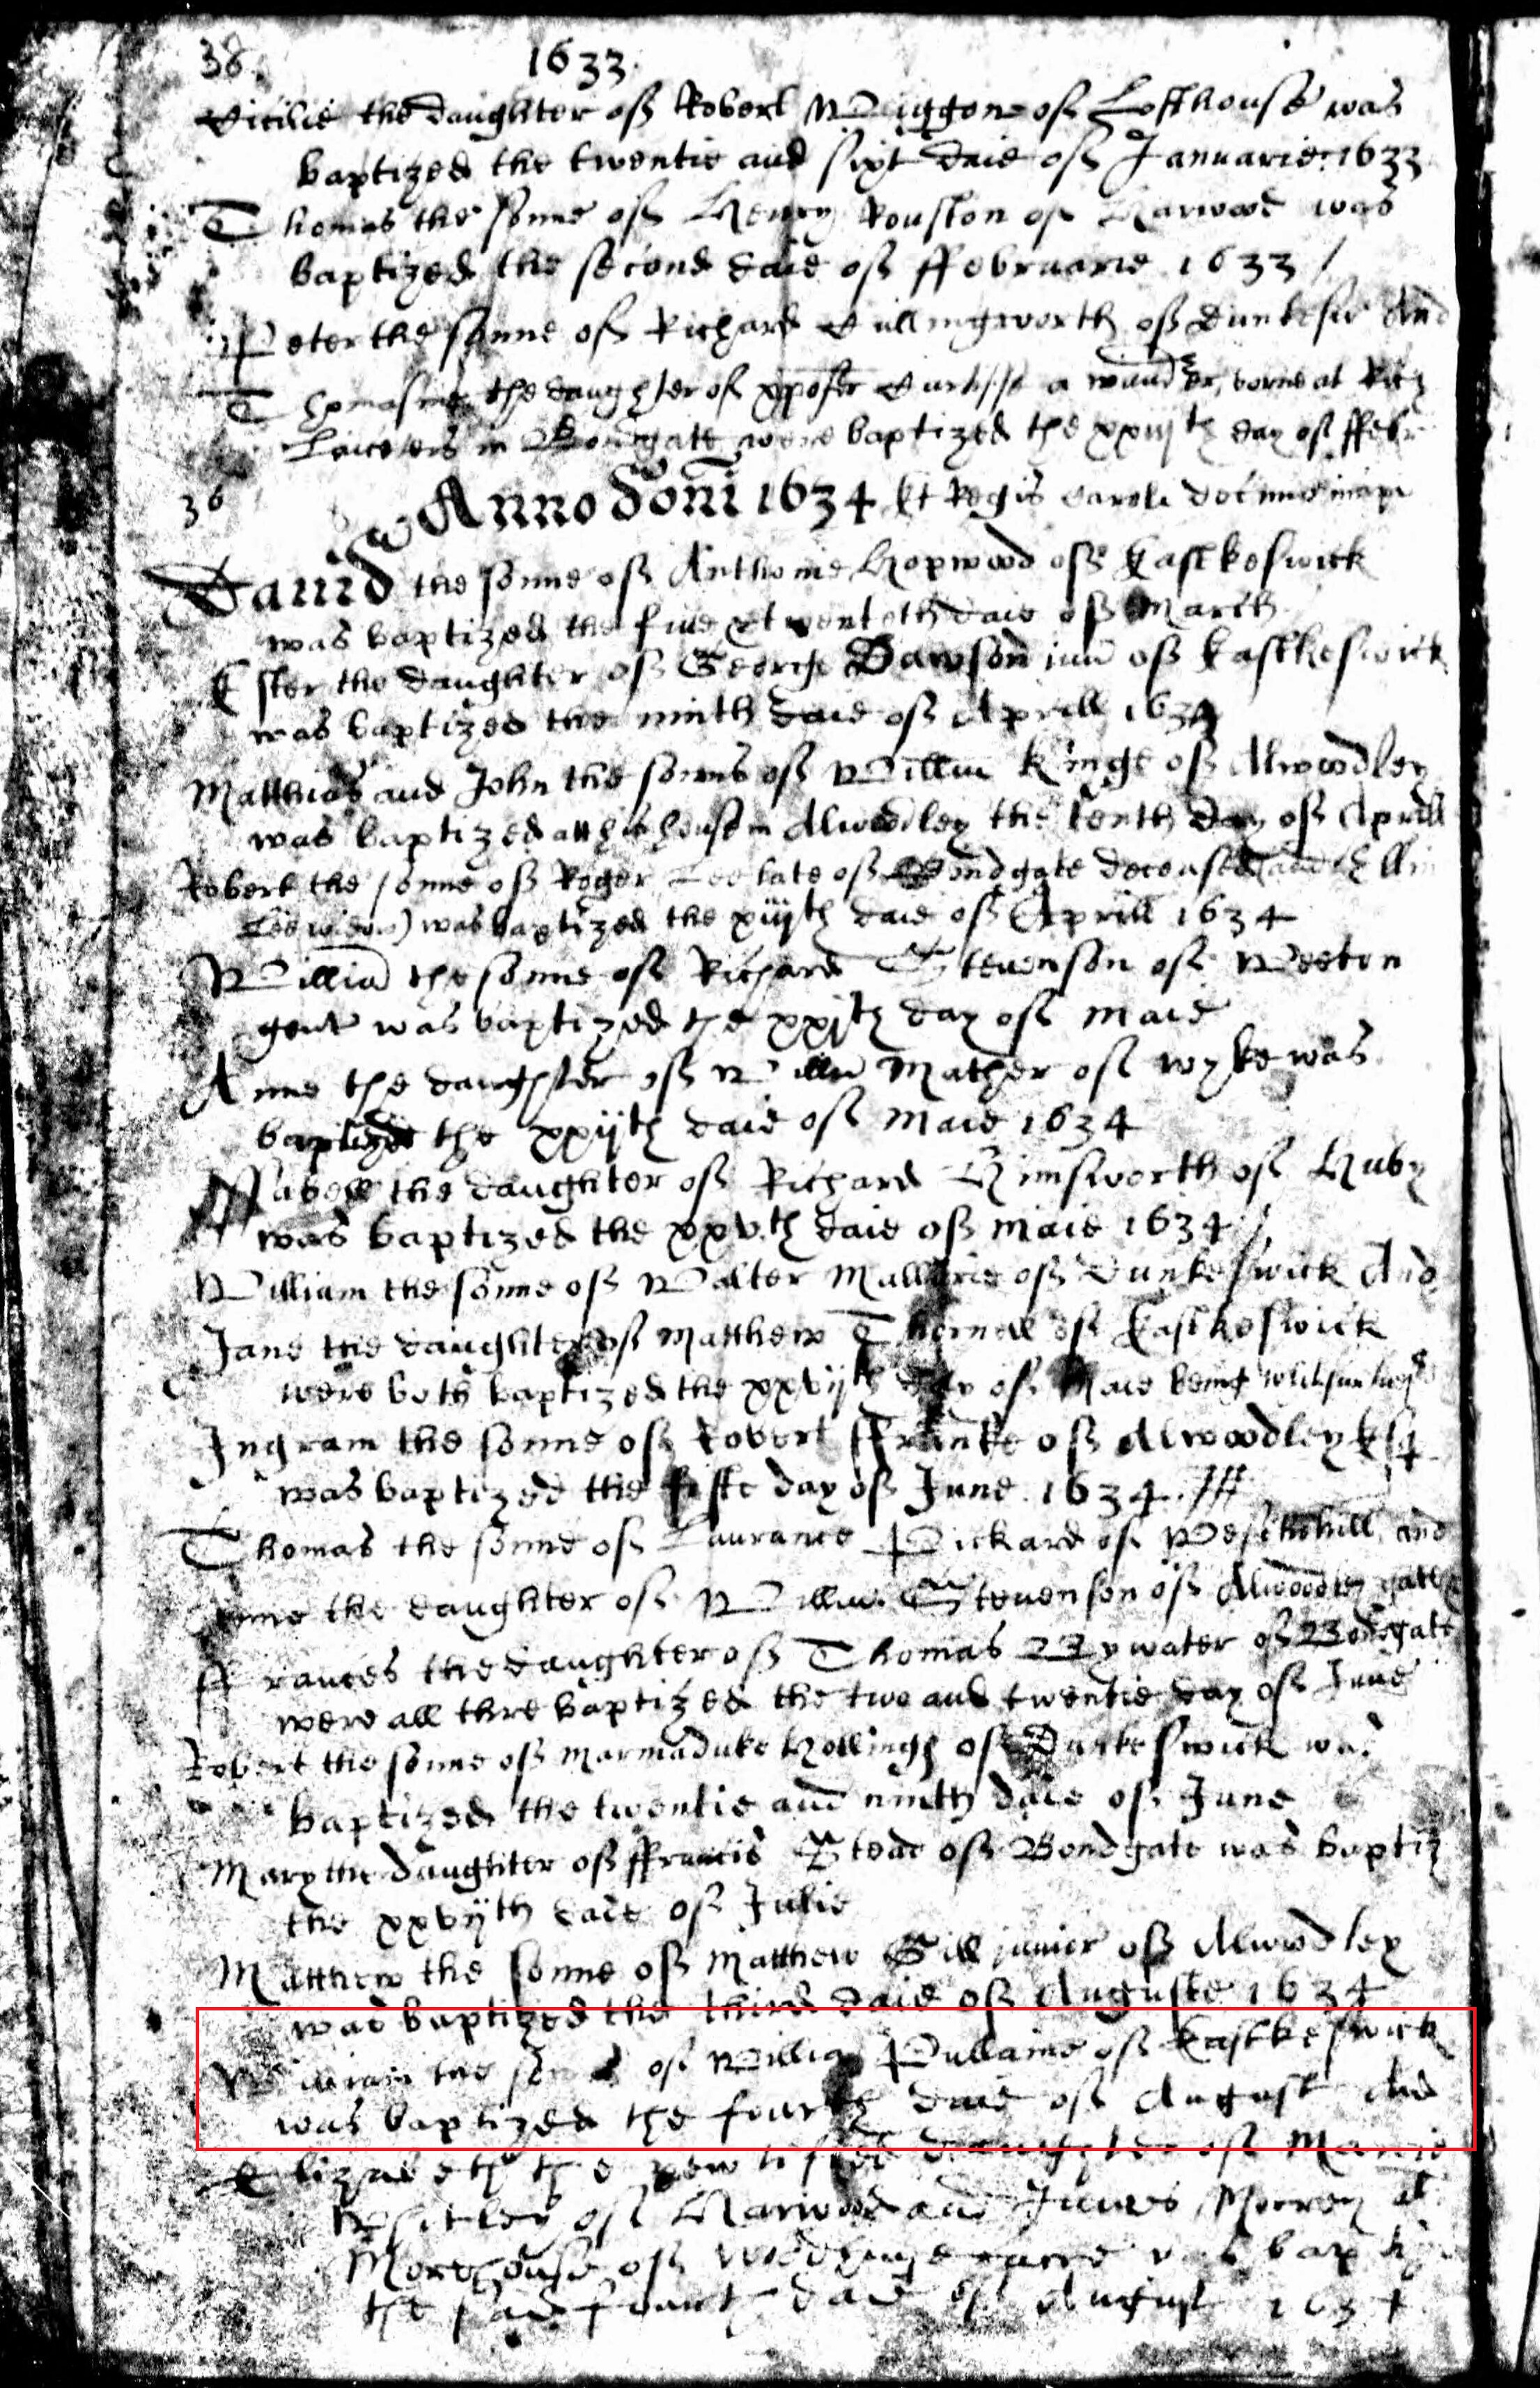 38. 1633.
the daughter off Robert Wiggon off Lofthouse was
baptized the twentie and sixt daie off Januarie: 1633
Thomas the sonne off Henry Rouston off Harwood was
baptized the second daie off ffebruarie 1633 /
Peter the sonne off Richard Cullingworth off Dunkeswi And
the daughter of xpofer a wand er, borne at
in Bondgate were baptized the day off ffebr
36 Anno Domi 1634 Et Regis Caroli
David the sonne off Anthonie Hopwood off Eastkeswick
was baptized the daie off March
Ester the daughter off George Dawson iun off Eastkeswick
was baptized the ninth daie off Aprill 1634
Matthias and John the sonns off Willm Kinge off Alwoodley
was baptized att his house in Alwoodley the tenth day off Aprill
Robert the sonne off Roger Lee late off Bondgate deceased (and Ellin
Lee widow) was baptized the daie off Aprill 1634
Willia the sonne off Richard Stevenson off Weeton
gent was baptized the day off Maie
Anne the daughter off Willm Mather off Wyke was
baptized the xxijth daie off Maie 1634
Mabell the daughter off Richard Himsworth off Huby
was baptized the xxvth daie off Maie 1634 /
William the sonne off Walter Mallorie off Dunkeswick And
Jane the daughter off Matthew Thernell off Eastkeswick
were both baptized the day off Maie being
Ingram the sonne off Robert ffranke off Alwoodley Esq
was baptized the day off June. 1634.
Thomas the sonne off Laurance Pickard off and
the daughter off Willm Stevenson off Alwoodley gates
ffrances the daughter off Thomas Bywater off Bondgate
were all thre baptized the two and twentie day off June
Robert the sonne off Marmaduke Hollings off Dunkeswick was
baptized the twentie and ninth daie off June
Mary the daughter off ffrancis Stead off Bondgate was baptiz
the xxvijth daie off Julie
Matthew the sonne off Matthew Gill junior off Alwodley
was baptized the third daie off Auguste 1634
William the sonne off Willia Pullaine off Eastkeswick
was baptized the fourth daie off August And
Elizabeth the daughter off
off Harwood and James Morrey
off was baptiz
the said fourth daie off August 1634